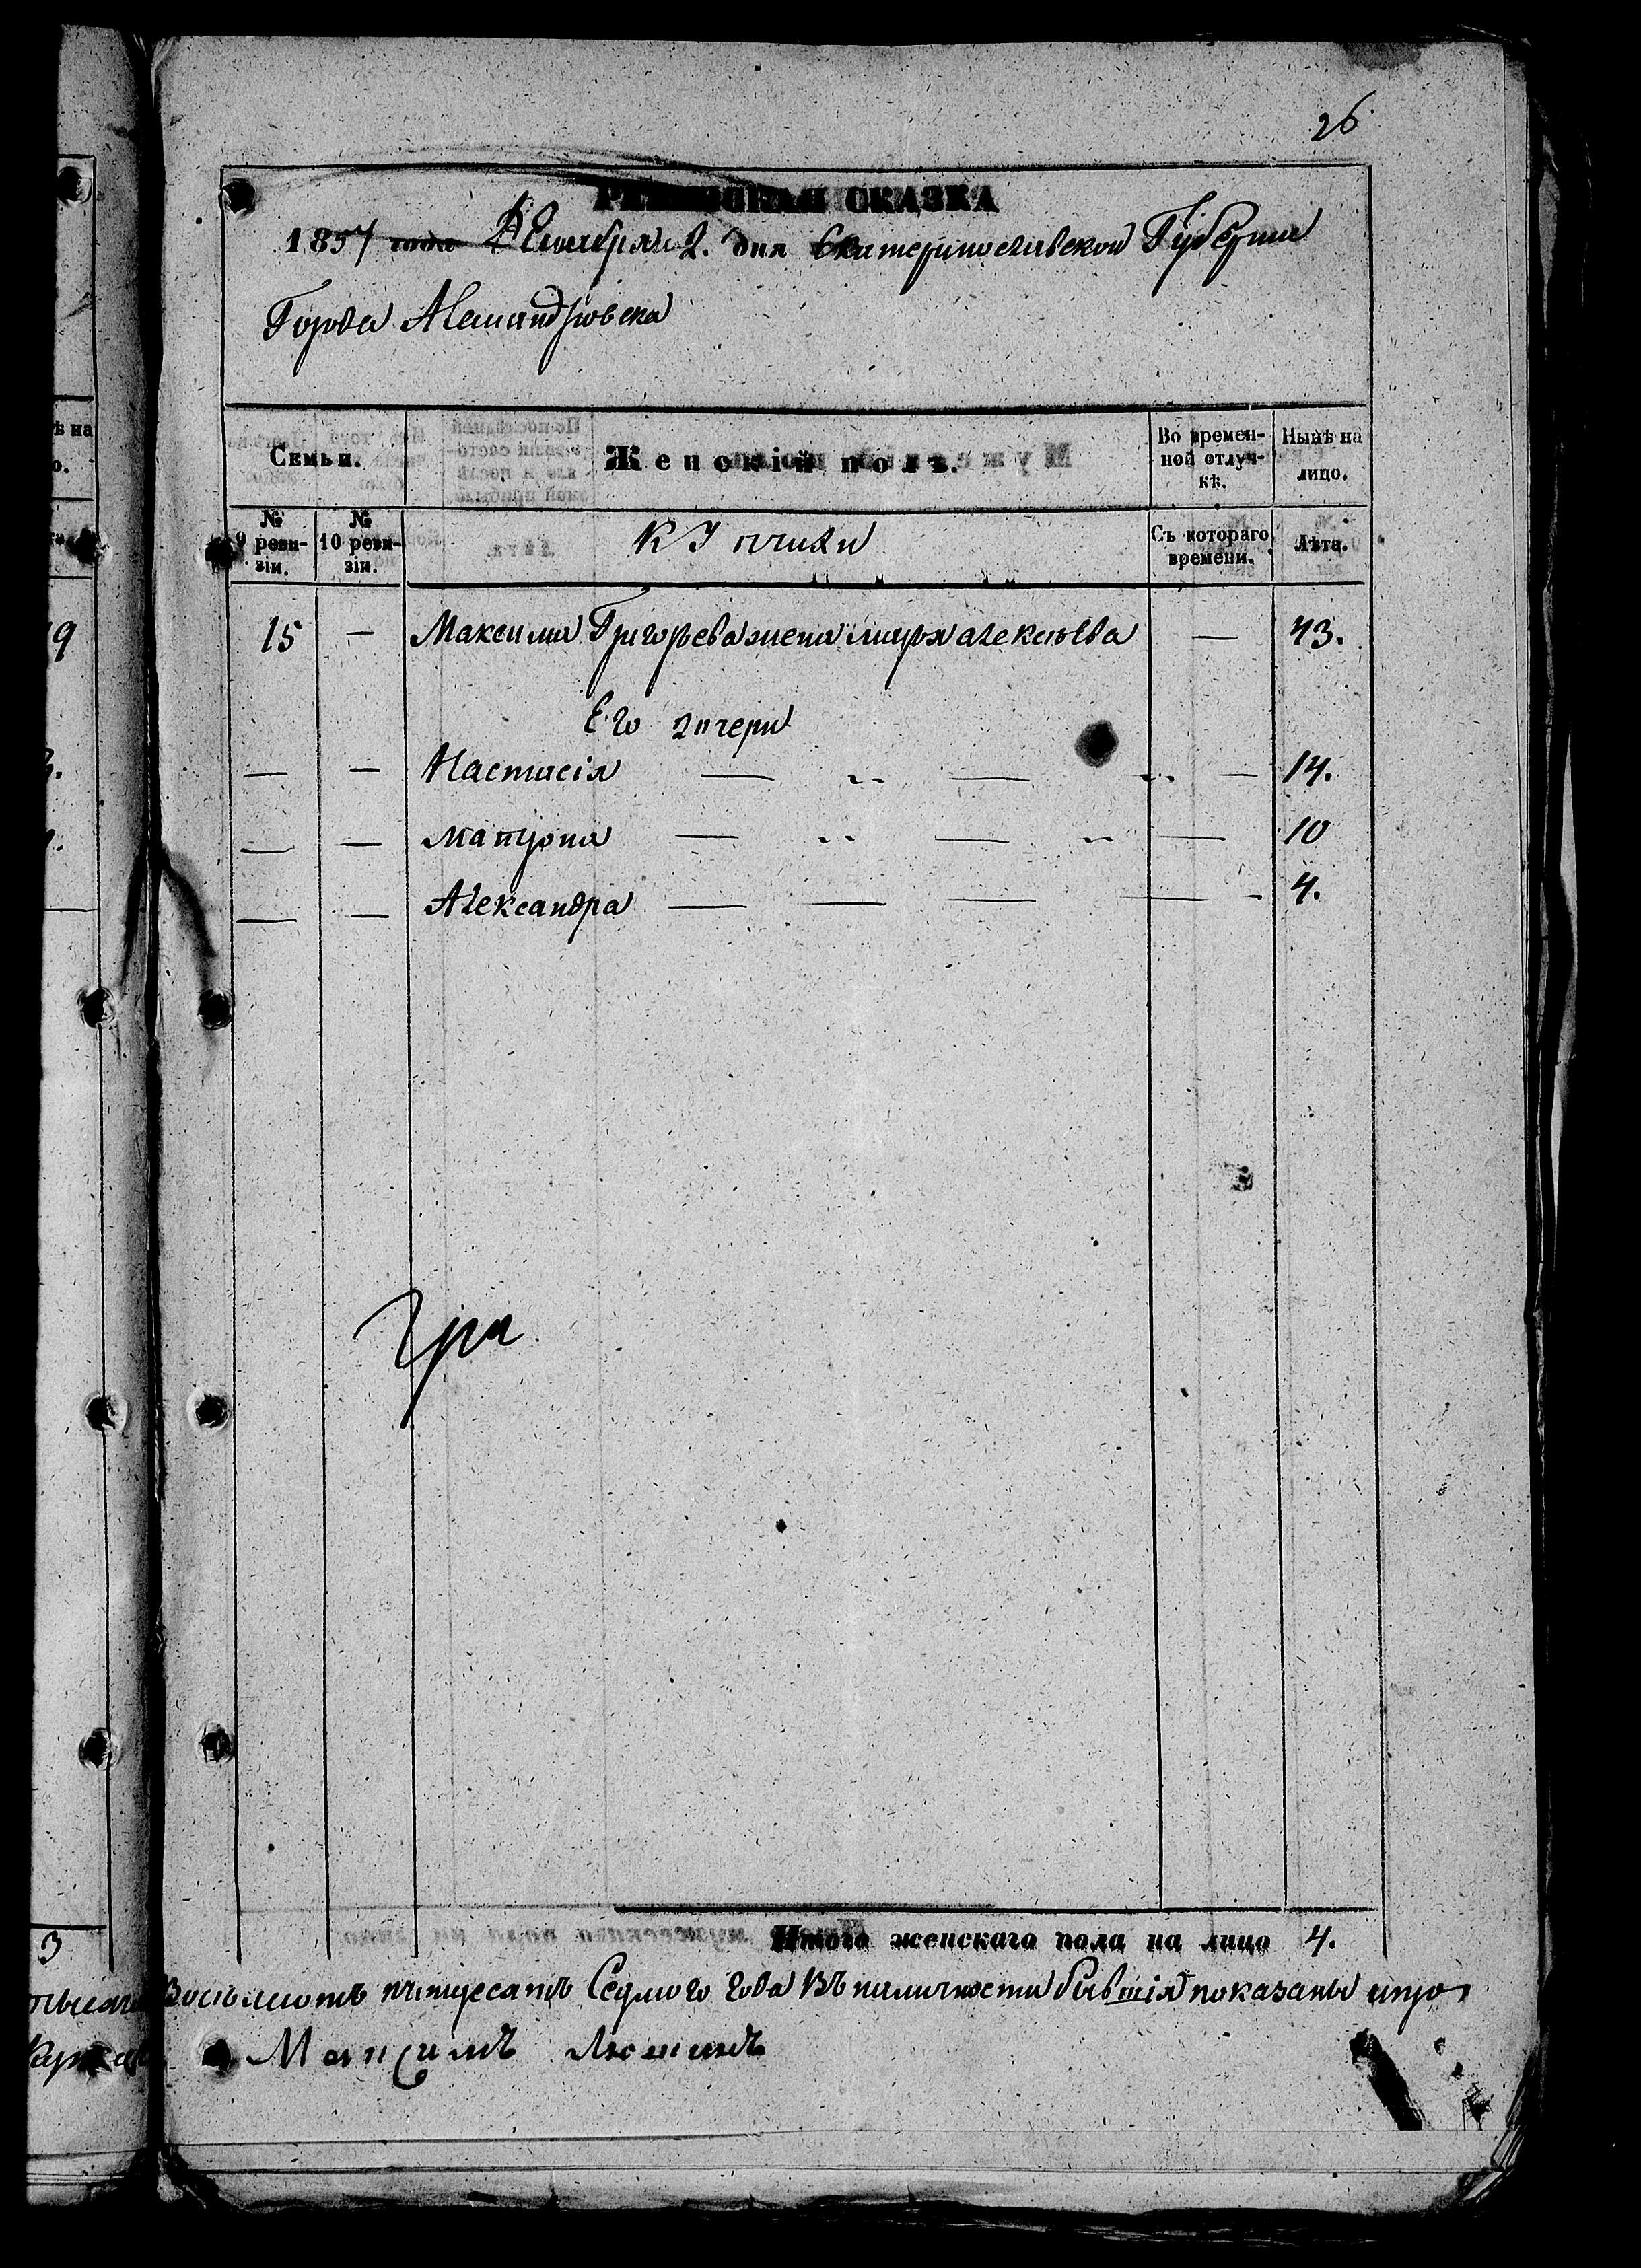 26
РЕВИЗСКАЯ СКАЗКА
1857 года Декабря 2. дня Екатеринославской Губернии
Города Александровска
Семьи.
Женскій полъ.
Во времен-
ной отлуч-
кѣ.
Нынѣ на
лицо.
№
9 реви-
зіи.
№
10 реви-
зіи.
Съ котораго
времени.
Лѣта.
15 — Максима Григорьева жена марья алексѣева — 43.
Его дочери
— — Настасія — — — 14.
— — матрона — — — 10
— — Александра — — — — 4.
Итого женскаго пола на лицо 4.
Восемьсотъ пятидесятъ Седмого года Въ наличности бывшія показаны
Максимъ